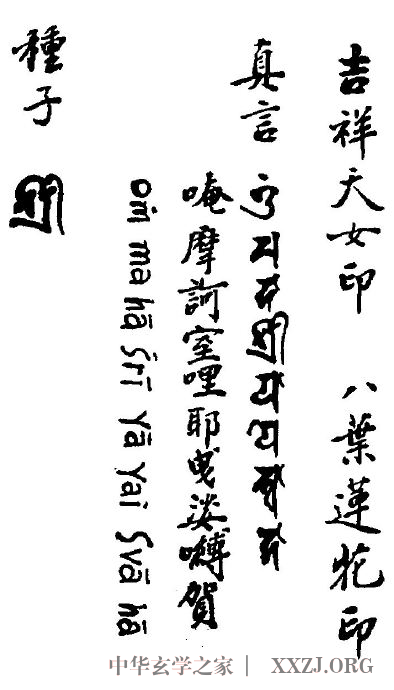 吉祥天女印 八葉蓮花印
真言 𑖌𑖼𑖦𑖮𑖯𑖫𑖿𑖨𑖱𑖧𑖯𑖧𑖹𑖭𑖿𑖪𑖯𑖮𑖯
唵摩訶室哩耶曳娑嚩賀
oṁ ma hā śrī yā yai svā hā
種子 𑖫𑖿𑖨𑖱
中华玄学之家 | XXZJ.ORG